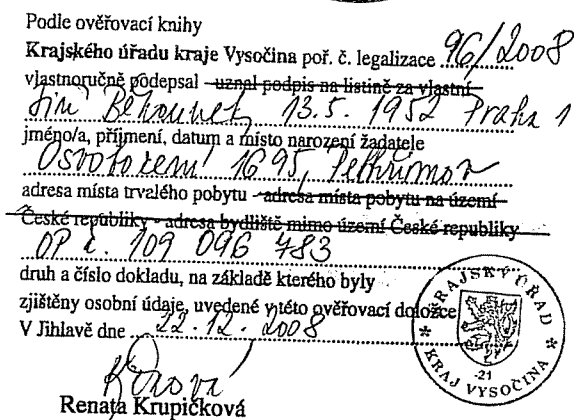 Podle ověřovací knihy
Krajského úřadu kraje Vysočina poř. č. legalizace 96/2008
vlastnoručně podepsal - uznal podpis na listině za vlastní
Jiří Běhounek, 13.5. 1952 Praha 1
jméno/a, příjmení, datum a místo narození žadatele
Osvobození 1695, Pelhřimov
adresa místa trvalého pobytu - adresa místa pobytu na území
České republiky - adresa bydliště mimo území České republiky
OP č. 109 096 783
druh a číslo dokladu, na základě kterého byly
zjištěny osobní údaje, uvedené v této ověřovací doložce
V Jihlavě dne 22.12.2008
Renata Krupičková
KRAJSKÝ ÚŘAD
-21
KRAJ VYSOČINA